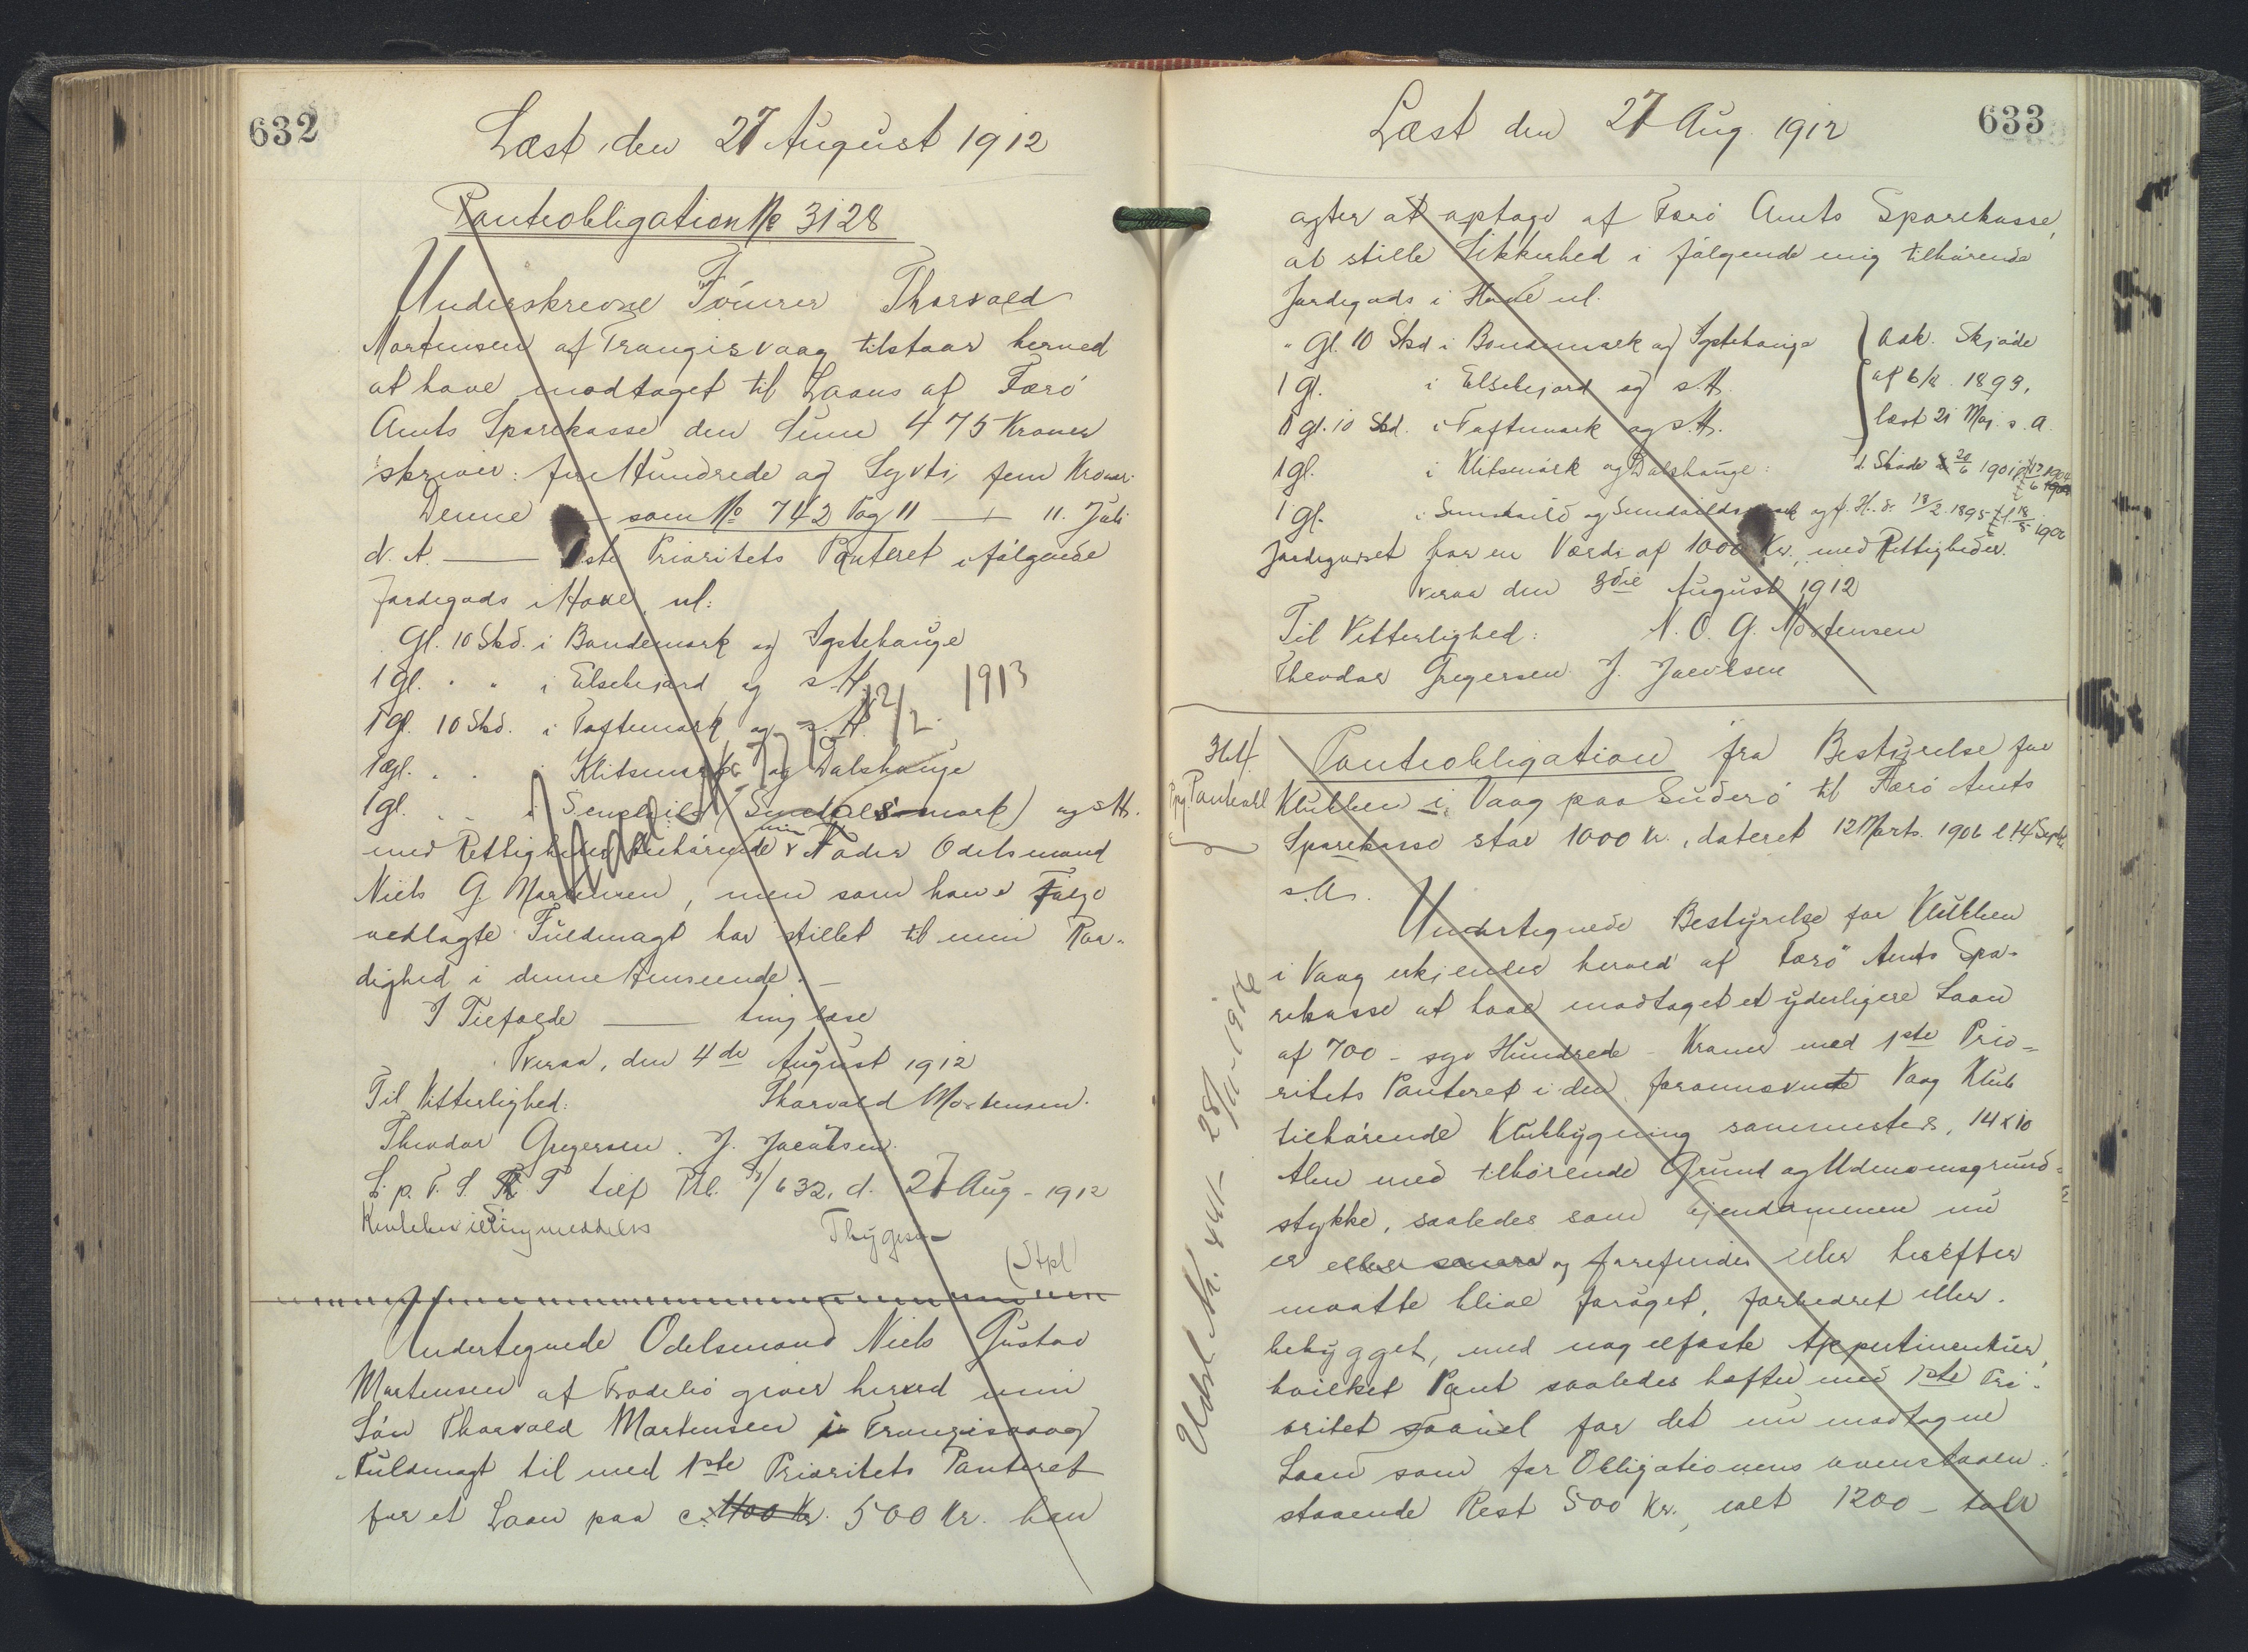 632
Læst den 27 August 1912
Panteobligation No 3128
Underskrevne Tømrer Thorvald
Mortensen af Trangisvaag tilstaar herved
at have modtaget til Laans af Færø
Amts Sparekasse den Sum 475 Kroner
skriver: fire Hundrede og Syvti fem Kroner.
Denne — som No 742 Pag 11 — 11. Juli
d. A. — 1ste Prioritets Panteret i følgende
Jordegods i Hove, nl:
Gl. 10 Skd. i Bondemark og Ygstehauge
1 gl. " " i Elsebejord og s.H.
1 gl. 10 Skd. i Toftemark og s.H.
1 gl. . . i Klitsmark og Dalshauge
1 gl. . . i (Sendals mark) og s.H.
med Rettigheder tilhørende min Fader Odelsmand
Niels G. Mortensen, men som han i Følge
vedlagte Fuldmagt har stillet til min Raa-
dighed i denne Henseende. —
I Tilfælde — tinglæse
Tveraa, den 4de August 1912
Til Vitterlighed: Thorvald Mortensen.
Theodor Gregersen. J. Jacobsen.
L. p. T. S. T tilf Ptb. 632, d. 27 Aug - 1912
Thygesen
(Stpl)
12/2. 1913
Undertegnede Odelsmand Niels Gustav
Mortensen af Frodebø giver herved min
Søn Thorvald Mortensen i Trangisvaag
Fuldmagt til med 1ste Prioritets Panteret
for et Laan paa c. 400 Kr. 500 Kr. han
633
Læst den 27 Aug. 1912
agter at optage af Færø Amts Sparekasse,
at stille Sikkerhed i følgende mig tilhørende
Jordegods i Hove nl.
" Gl. 10 Skd i Bondemark og Ygstehauge } Adk. Skjøde
1 gl. i Elsebejord og s.H. af 6/2. 1899,
1 gl. 10 Skd. i Toftemark og s.H. læst 21 Maj s. A.
1 gl. i Klitsmark og Dalshauge:
1 gl. i
Jordegodset har en Værdi af 1000 Kr., med Rettigheder.
Tveraa den 3die August 1912
Til Vitterlighed: N. O. G. Mortensen
Theodor Gregersen J. Jacobsen
Panteobligation fra Bestyrelse for
Klubben i Vaag paa Suderø til Færø Amts
Sparekasse stor 1000 Kr., dateret 12 Marts 1906 l. 14 Septb.
s.A.
Undertegnede Bestyrelse for Klubben
i Vaag erkjender herved af Færø Amts Spa-
rekasse at have modtaget et yderligere Laan
af 700 - syv Hundrede - Kroner med 1ste Prio-
ritets Panteret i den forannævnte Vaag Klub
tilhørende Klubbygning sammesteds, 14 x 10
Alen med tilhørende Grund og Udenomsgrund-
stykke, saaledes som Ejendommen nu
er og forefindes eller herefter
maatte blive forøget, forbedret eller
bebygget, med nagelfaste Appertinentier,
hvilket Pant saaledes hæfter med 1ste Pri-
oritet saavel for det nu modtagne
Laan som for Obligationens
staaende Rest 500 Kr., ialt 1200 - tolv